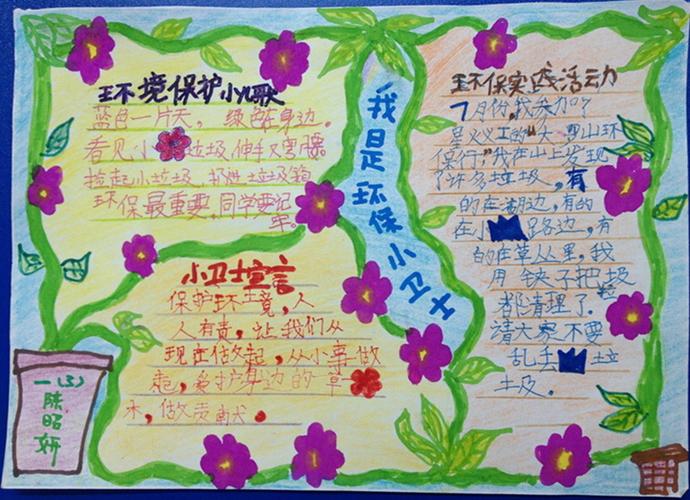 环境保护小儿歌
蓝色一片天，绿色在身边。
看见小垃圾，伸手又弯腰。
捡起小垃圾，扔进垃圾箱
环保最重要，同学要记
牢。
小卫士宣言
保护环境，人
人有责，让我们从
现在做起，从小事做
起，爱护身边的一草一
木，做贡献。
我是环保小卫士
环保实践活动
7月份，我参加了
星火义工的“大雪山环
保行”我在山上发现
了许多垃圾，有
的在湖边，有的
在小路边，有
的在草丛里，我
用铁子把垃圾
都清理了。
请大家不要
乱丢垃
圾。
一(3)
陈昭妍